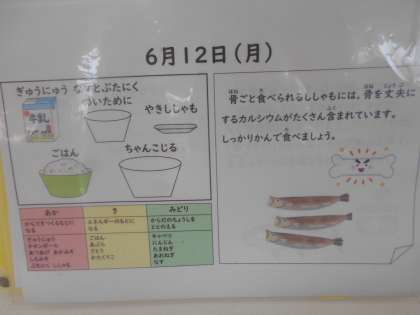 6月12日(月)
ぎゅうにゅう なすとぶたにく
のいために
牛乳
やきししゃも
ごはん
ちゃんこじる
骨ごと食べられるししゃもには、骨を丈夫に
するカルシウムがたくさん含まれています。
しっかりかんで食べましょう。
あか き みどり
からだをつくるもとに
なる
エネルギーのもとに
なる
からだのちょうしを
ととのえる
ぎゅうにゅう
ごはん
あぶら
さとう
かたくりこ
キャベツ
にんじん
たまねぎ
なす